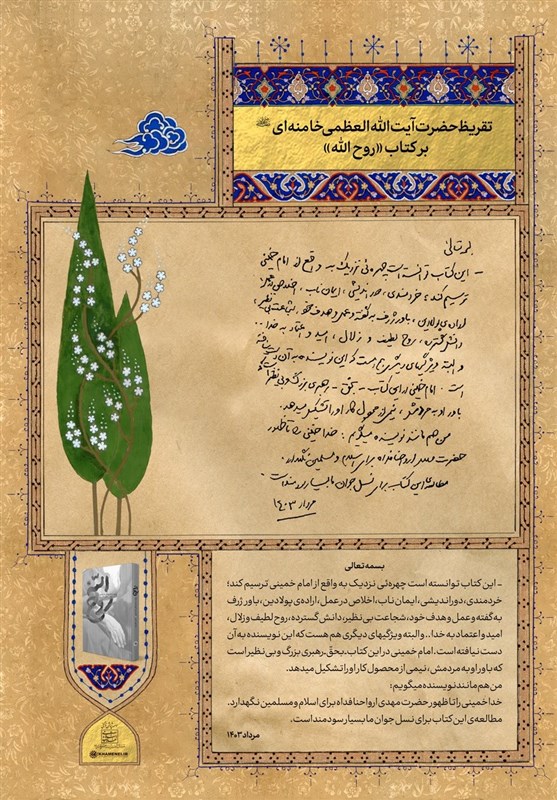 تقریظ حضرت آیت الله العظمی خامنه‌ای
بر کتاب «روح الله»
بسمه تعالی
- این کتاب توانسته است چهره‌ئی نزدیک به واقع از امام خمینی
ترسیم کند؛ خردمندی، دوراندیشی، ایمان ناب، اخلاص در عمل،
اراده‌ی پولادین، باور ژرف به گفته و عمل و هدف خود، شجاعت بی‌نظیر،
دانش گسترده، روح لطیف و زلال، امید و اعتماد به خدا..
و البته ویژگیهای دیگری هم هست که این نویسنده به آن دست نیافته
است. امام خمینی در این کتاب - بحق - رهبری بزرگ و بی نظیر است که
باور او به مردمش، نیمی از محصول کار او را تشکیل میدهد.
من هم مانند نویسنده میگویم: خدا خمینی را تا ظهور
حضرت مهدی ارواحنا فداه برای اسلام و مسلمین نگهدارد.
مطالعه‌ی این کتاب برای نسل جوان ما بسیار سودمند است.
مرداد ۱۴۰۳
بسمه تعالی
- این کتاب توانسته است چهره‌ئی نزدیک به واقع از امام خمینی ترسیم کند؛
خردمندی، دوراندیشی، ایمان ناب، اخلاص در عمل، اراده‌ی پولادین، باور ژرف
به گفته و عمل و هدف خود، شجاعت بی نظیر، دانش گسترده، روح لطیف و زلال،
امید و اعتماد به خدا.. و البته ویژگیهای دیگری هم هست که این نویسنده به آن
دست نیافته است. امام خمینی در این کتاب-بحق-رهبری بزرگ و بی نظیر است
که باور او به مردمش، نیمی از محصول کار او را تشکیل میدهد.
من هم مانند نویسنده میگویم:
خدا خمینی را تا ظهور حضرت مهدی ارواحنا فداه برای اسلام و مسلمین نگهدارد.
مطالعه‌ی این کتاب برای نسل جوان ما بسیار سودمند است.
مرداد ۱۴۰۳
KHAMENEI.IR